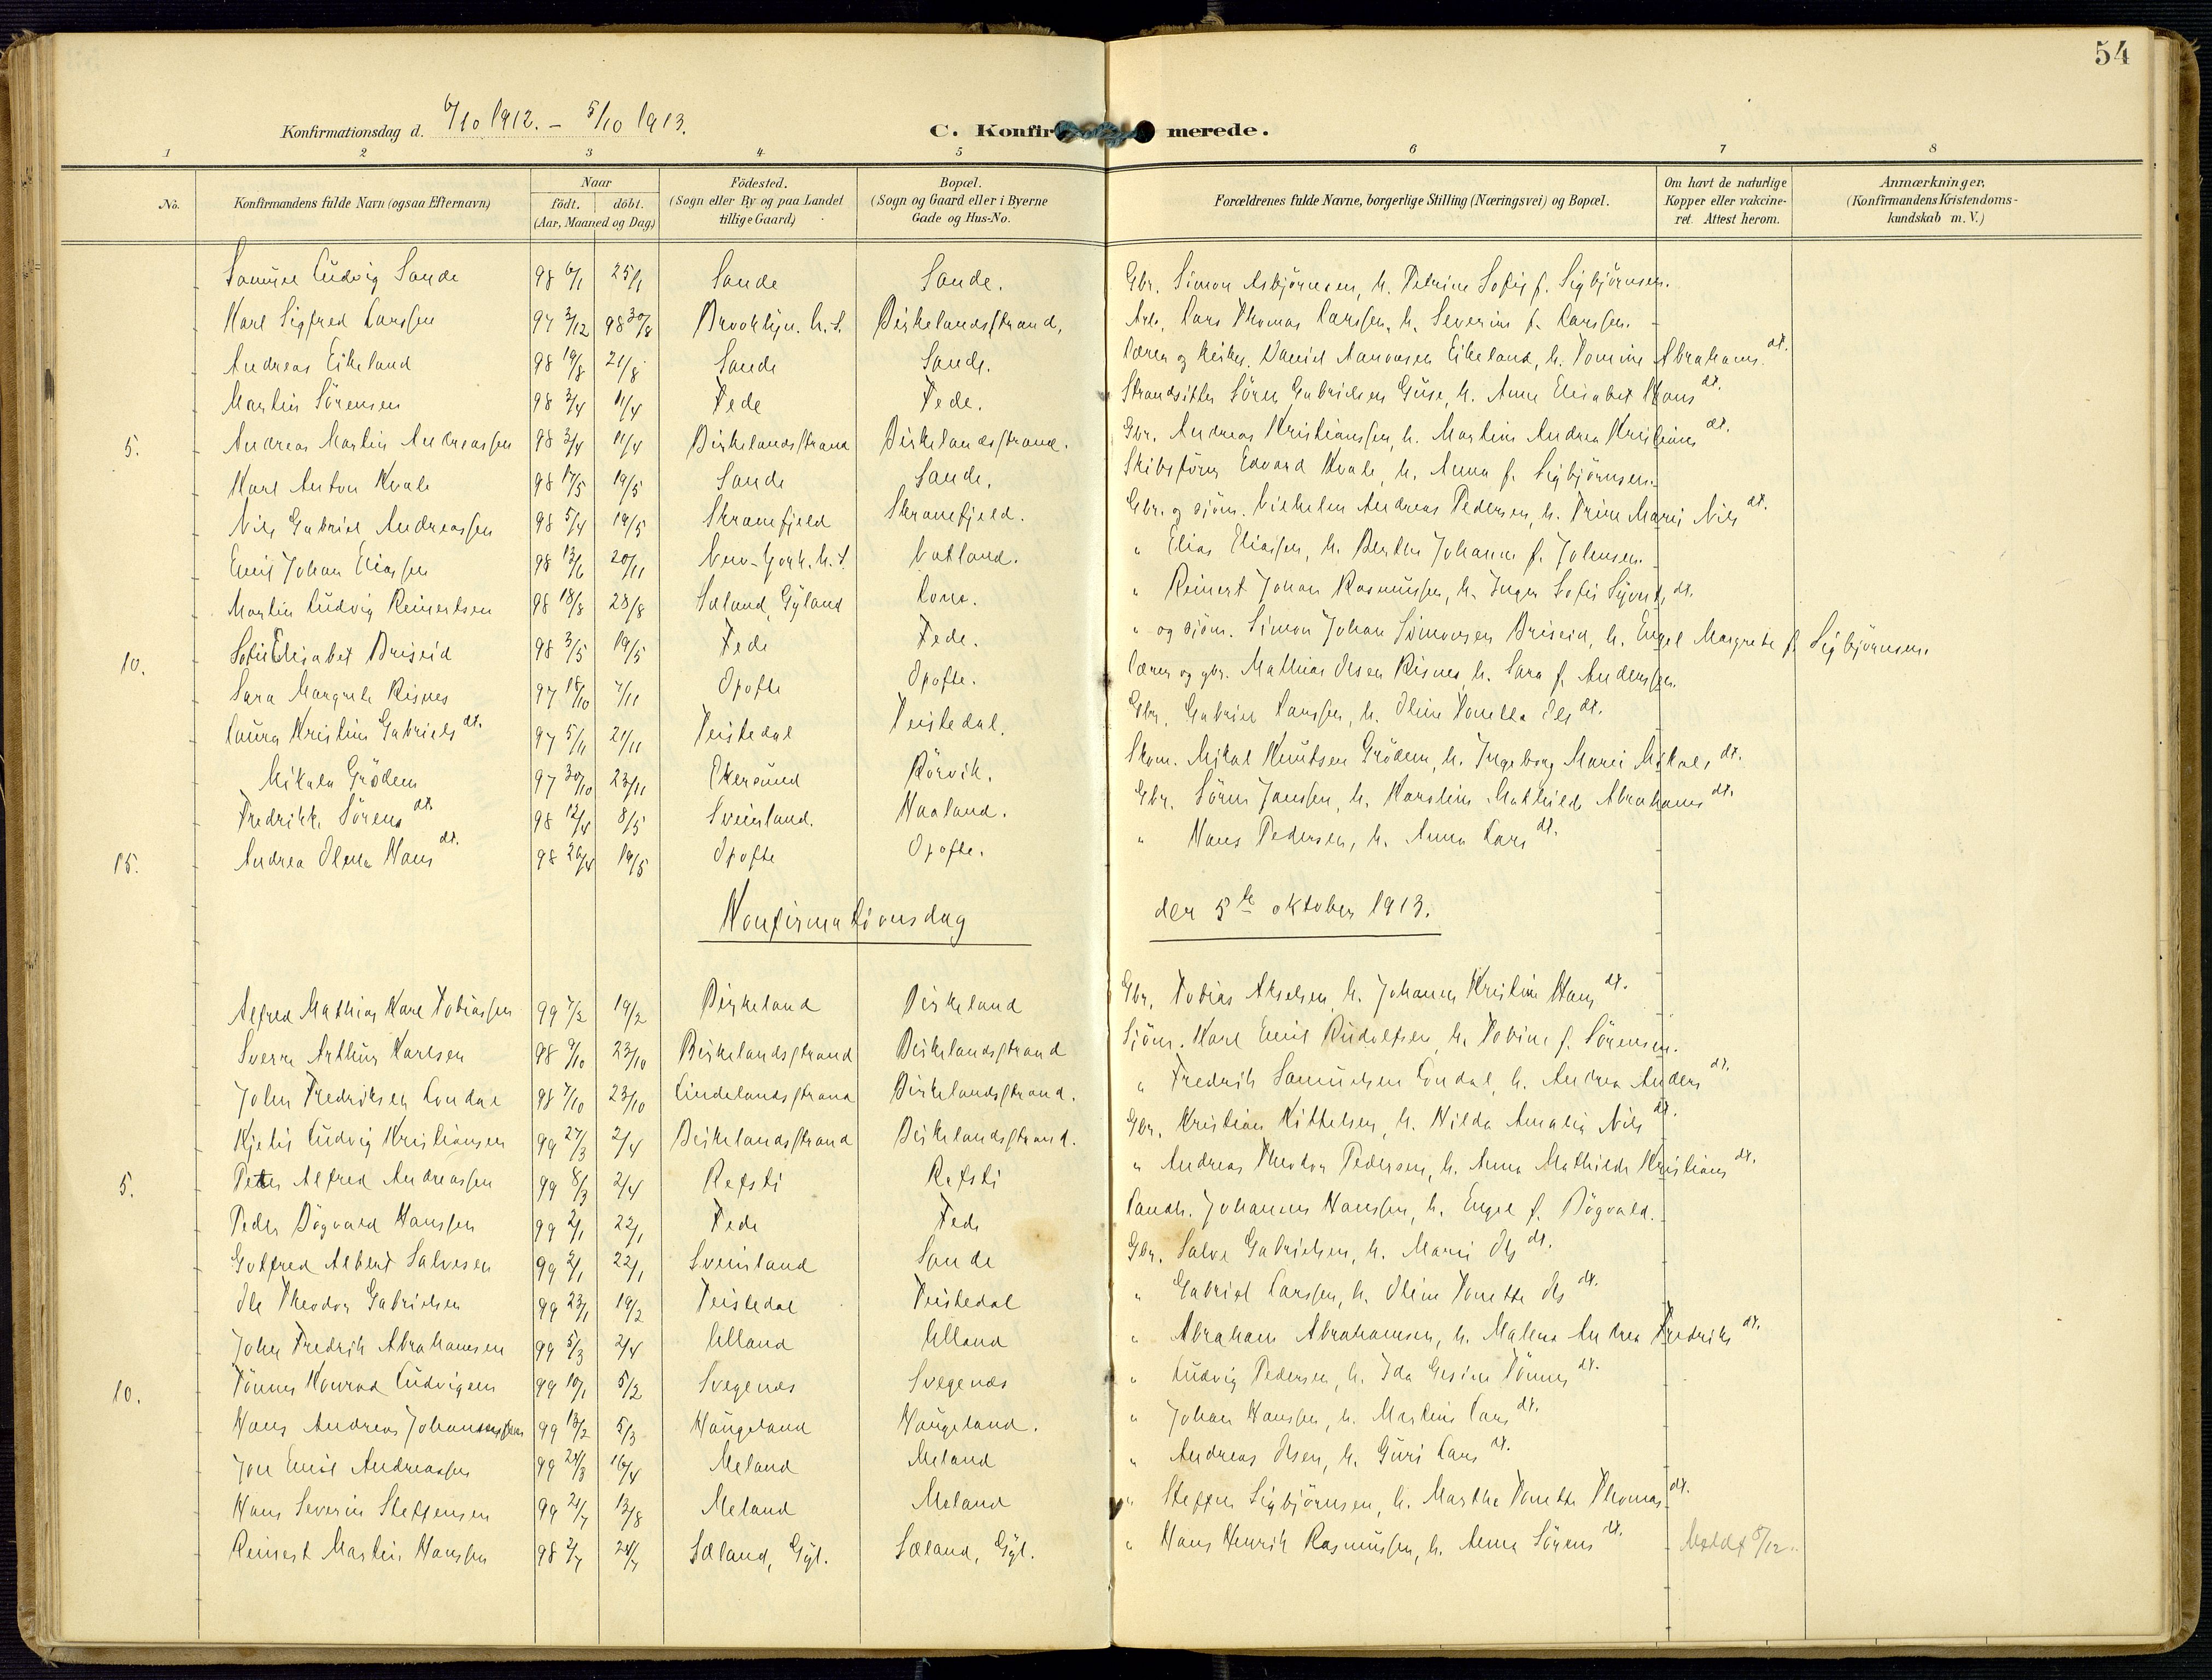 54
Konfirmationsdag d. 6/10 1912. – 5/10 1913.
C. Konfirmerede.
1 2 3 4 5 6 7 8
No.
Konfirmandens fulde Navn (ogsaa Efternavn)
Naar
födt. döbt.
(Aar, Maaned og Dag)
Födested.
(Sogn eller By og paa Landet
tillige Gaard)
Bopæl.
(Sogn og Gaard eller i Byerne
Gade og Hus-No.
Forældrenes fulde Navne, borgerlige Stilling (Næringsvei) og Bopæl.
Om havt de naturlige
Kopper eller vakcine-
ret. Attest herom.
Anmærkninger.
(Konfirmandens Kristendoms-
kundskab m. V.)
Samuel Ludvig Sande 98 6/1 25/1 Sande Sande. Gbr. Simon Asbjörnsen, h. Petrine Sofie f. Sigbjörnsen.
Karl Sigfred Larssen 97 2/12 98 30/8 Brooklyn. Birkelandsstrand, Arb. Lars Thomas Larssen, h. Severine f. Larssen.
Andreas Eikeland 98 19/8 21/8 Sande Sande. Lærer og kirkes. Daniel Aanonsen Eikeland, h. Tomine Abrahams dt.
Martin Sörensen 98 3/4 11/4 Fede Fede. Strandsitter Sören Gabrielsen Guse, h. Anne Elisabet Hans dt.
5. Andreas Martin Andreassen 98 3/4 11/4 Birkelandsstrand Birkelandsstrand. Gbr. Andreas Kristianssen, h. Martine Andrea Kristians dt.
Karl Anton Kvale 98 17/5 19/5 Sande Sande. Skibsförer Edvard Kvale, h. Anna f. Sigbjörnsen.
Nils Gabriel Andreassen 98 5/4 19/5 Skranefjeld Skranefjeld. Gbr. og sjöm. Vilhelm Andreas Pedersen, h. Trine Marie Nils dt.
Emil Johan Eliassen 98 13/6 20/11 New-York. Natland. " Elias Eliassen, h. Berthe Johanne f. Johnsen.
Martin Ludvig Reinertsen 98 18/8 28/8 Sæland, Gyland Lone. " Reinert Johan Rasmussen, h. Inger Sofie Syverts dt.
10. Sofie Elisabet Briseid 98 3/5 19/5 Fede Fede. " og sjöm. Simon Johan Simonsen Briseid, h. Engel Margrete f. Sigbjörnsen.
Sara Margrete Risnes 97 18/10 7/11 Opofte Opofte. Lærer og gbr. Mathias Olsen Risnes, h. Sara f. Anderssen.
Laura Kristine Gabriels dt. 97 5/11 21/11 Teistedal Teistedal. Gbr. Gabriel Larssen, h. Oline Tonetta Ols dt.
Mikala Grödem 97 30/10 23/11 Ekersund Rörvik. Skom. Mikal Knutsen Grödem, h. Ingeborg Marie Mikals dt.
Fredrikke Sörens dt. 98 12/4 8/5 Sveinland. Haaland. Gbr. Sören Janssen, h. Karoline Mathilde Abrahams dt.
15. Andrea Olena Hans dt. 98 26/4 19/5 Opofte Opofte. " Hans Pedersen, h. Anna Lars dt.
Konfirmationsdag den 5te oktober 1913.
Alfred Mathias Karl Tobiassen 99 7/2 19/2 Birkeland Birkeland Gbr. Tobias Akselsen, h. Johanne Kristine Hans dt.
Sverre Arthur Karlsen 98 9/10 23/10 Birkelandsstrand Birkelandsstrand Sjöm. Karl Emil Rudolfsen, h. Tobine f. Sörensen.
John Fredriksen Londal 98 7/10 23/10 Lindelandsstrand Birkelandsstrand. " Fredrik Samuelsen Londal, h. Andrea Anders dt.
Kjetil Ludvig Kristiansen 99 27/3 2/4 Birkelandsstrand Birkelandsstrand. Gbr. Kristian Kittelsen, h. Hilda Amalia Nils dt.
5. Peter Alfred Andreassen 99 8/3 2/4 Refsti Refsti " Andreas Theodor Pedersen, h. Anna Mathilde Kristians dt.
Peder Bögvald Hanssen 99 2/1 22/1 Fede Fede Landh. Johannes Hanssen, h. Engel f. Bögvald.
Gotfred Albert Salvesen 99 2/1 22/1 Sveinland Sande Gbr. Salve Gabrielsen, h. Marie Ols dt.
Ole Theodor Gabrielsen 99 23/1 19/2 Teistedal Teistedal " Gabriel Larssen, h. Oline Tonette Ols dt.
John Fredrik Abrahamsen 99 5/3 2/4 Ulland Ulland " Abraham Abrahamsen, h. Malene Andrea Fredriks dt.
10. Tönnes Konrad Ludvigsen 99 10/1 5/2 Svegenes Svegenes " Ludvig Pedersen, h. Ida Gesine Tönnes dt.
Hans Andreas Johannessen 99 13/2 5/3 Haugeland Haugeland. " Johan Hanssen, h. Martine Lars dt.
Jon Emil Andreassen 99 24/3 16/4 Meland Meland " Andreas Olsen, h. Guri Lars dt.
Hans Severin Steffensen 99 21/7 13/8 Meland Meland " Steffen Sigbjörnsen, h. Marthe Tonette Thomas dt.
Reinert Martin Hanssen 98 2/7 24/7 Sæland, Gyl. Sæland, Gyl. " Hans Henrik Rasmussen, h. Anna Sörens dt. Meldt 5/12.